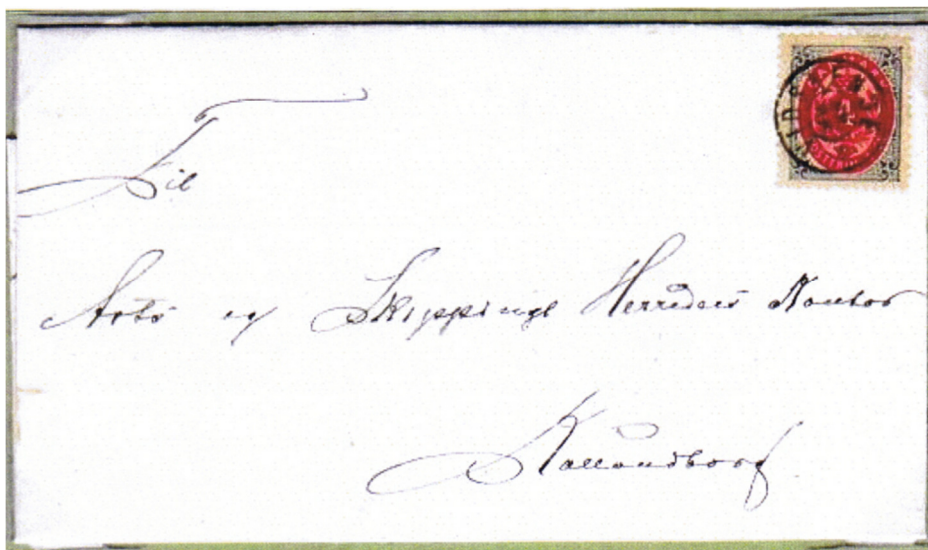 Til
Arts og Skippinge Herreders Kontor
Kallundborg